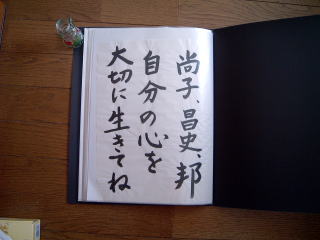 尚子、昌史、邦
自分の心を
大切に生きてね